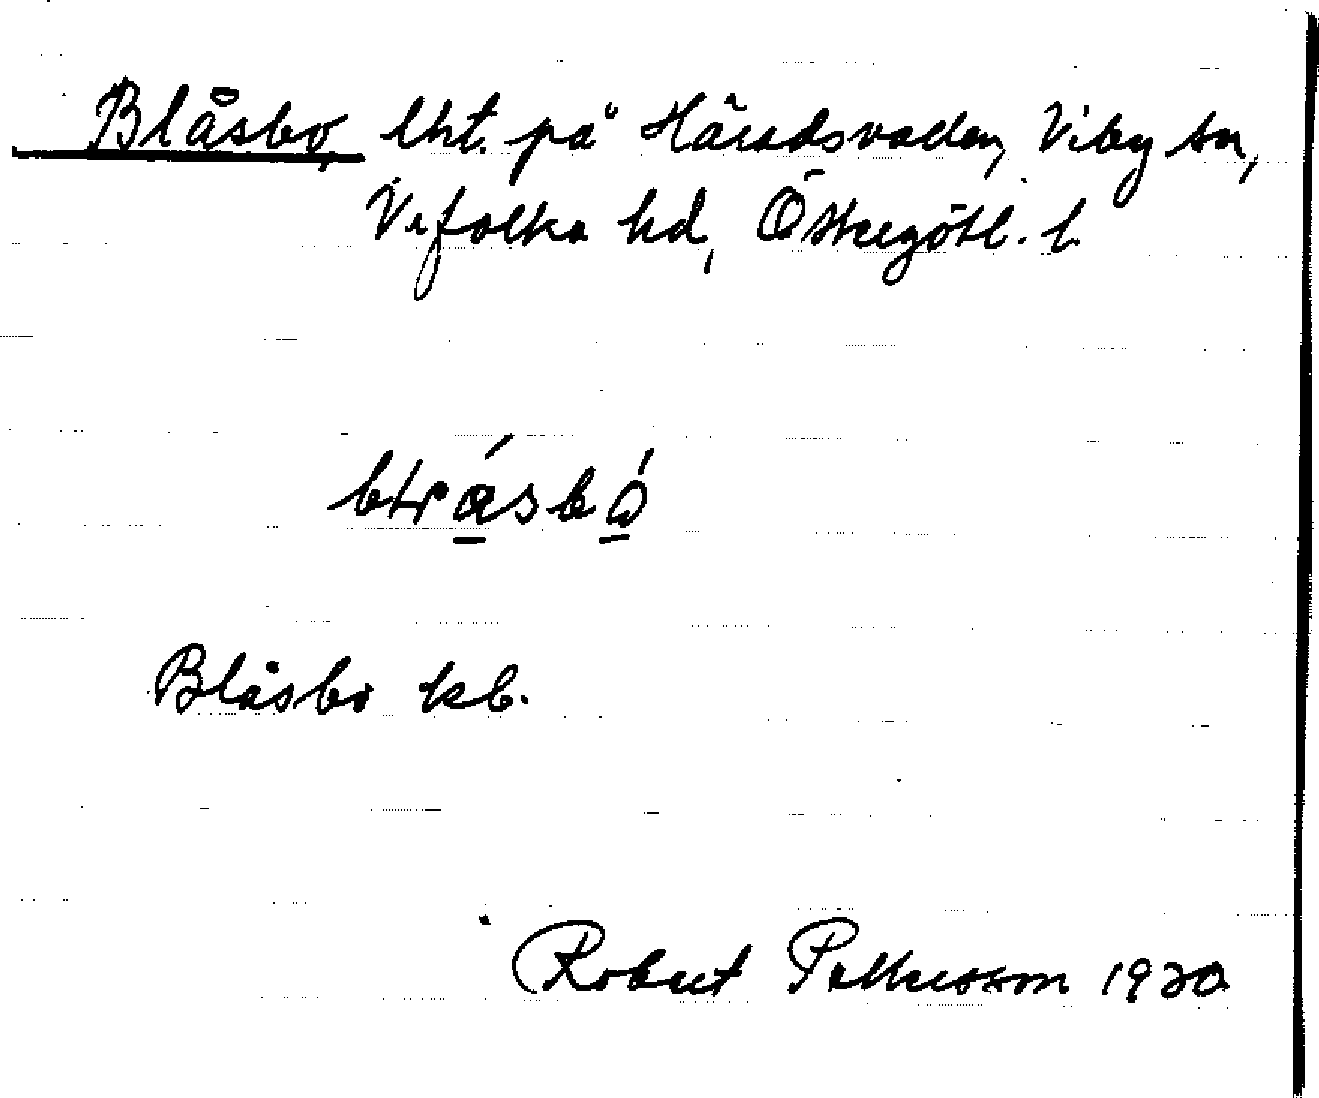 Blåsbo, lht. på Häradsvaden, Viby sn,
Vifolka hd, Östergötl. l.
Blåsbo kb.
Robert Pettersson 1920